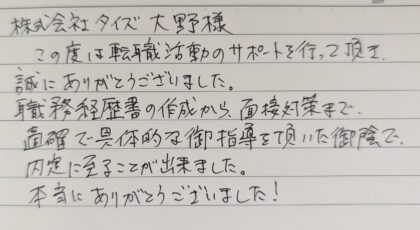 株式会社タイズ 大野様
この度は転職活動のサポートを行って頂き、
誠にありがとうございました。
職務経歴書の作成から、面接対策まで、
適確で具体的な御指導を頂いた御陰で、
内定に至ることが出来ました。
本当にありがとうございました!